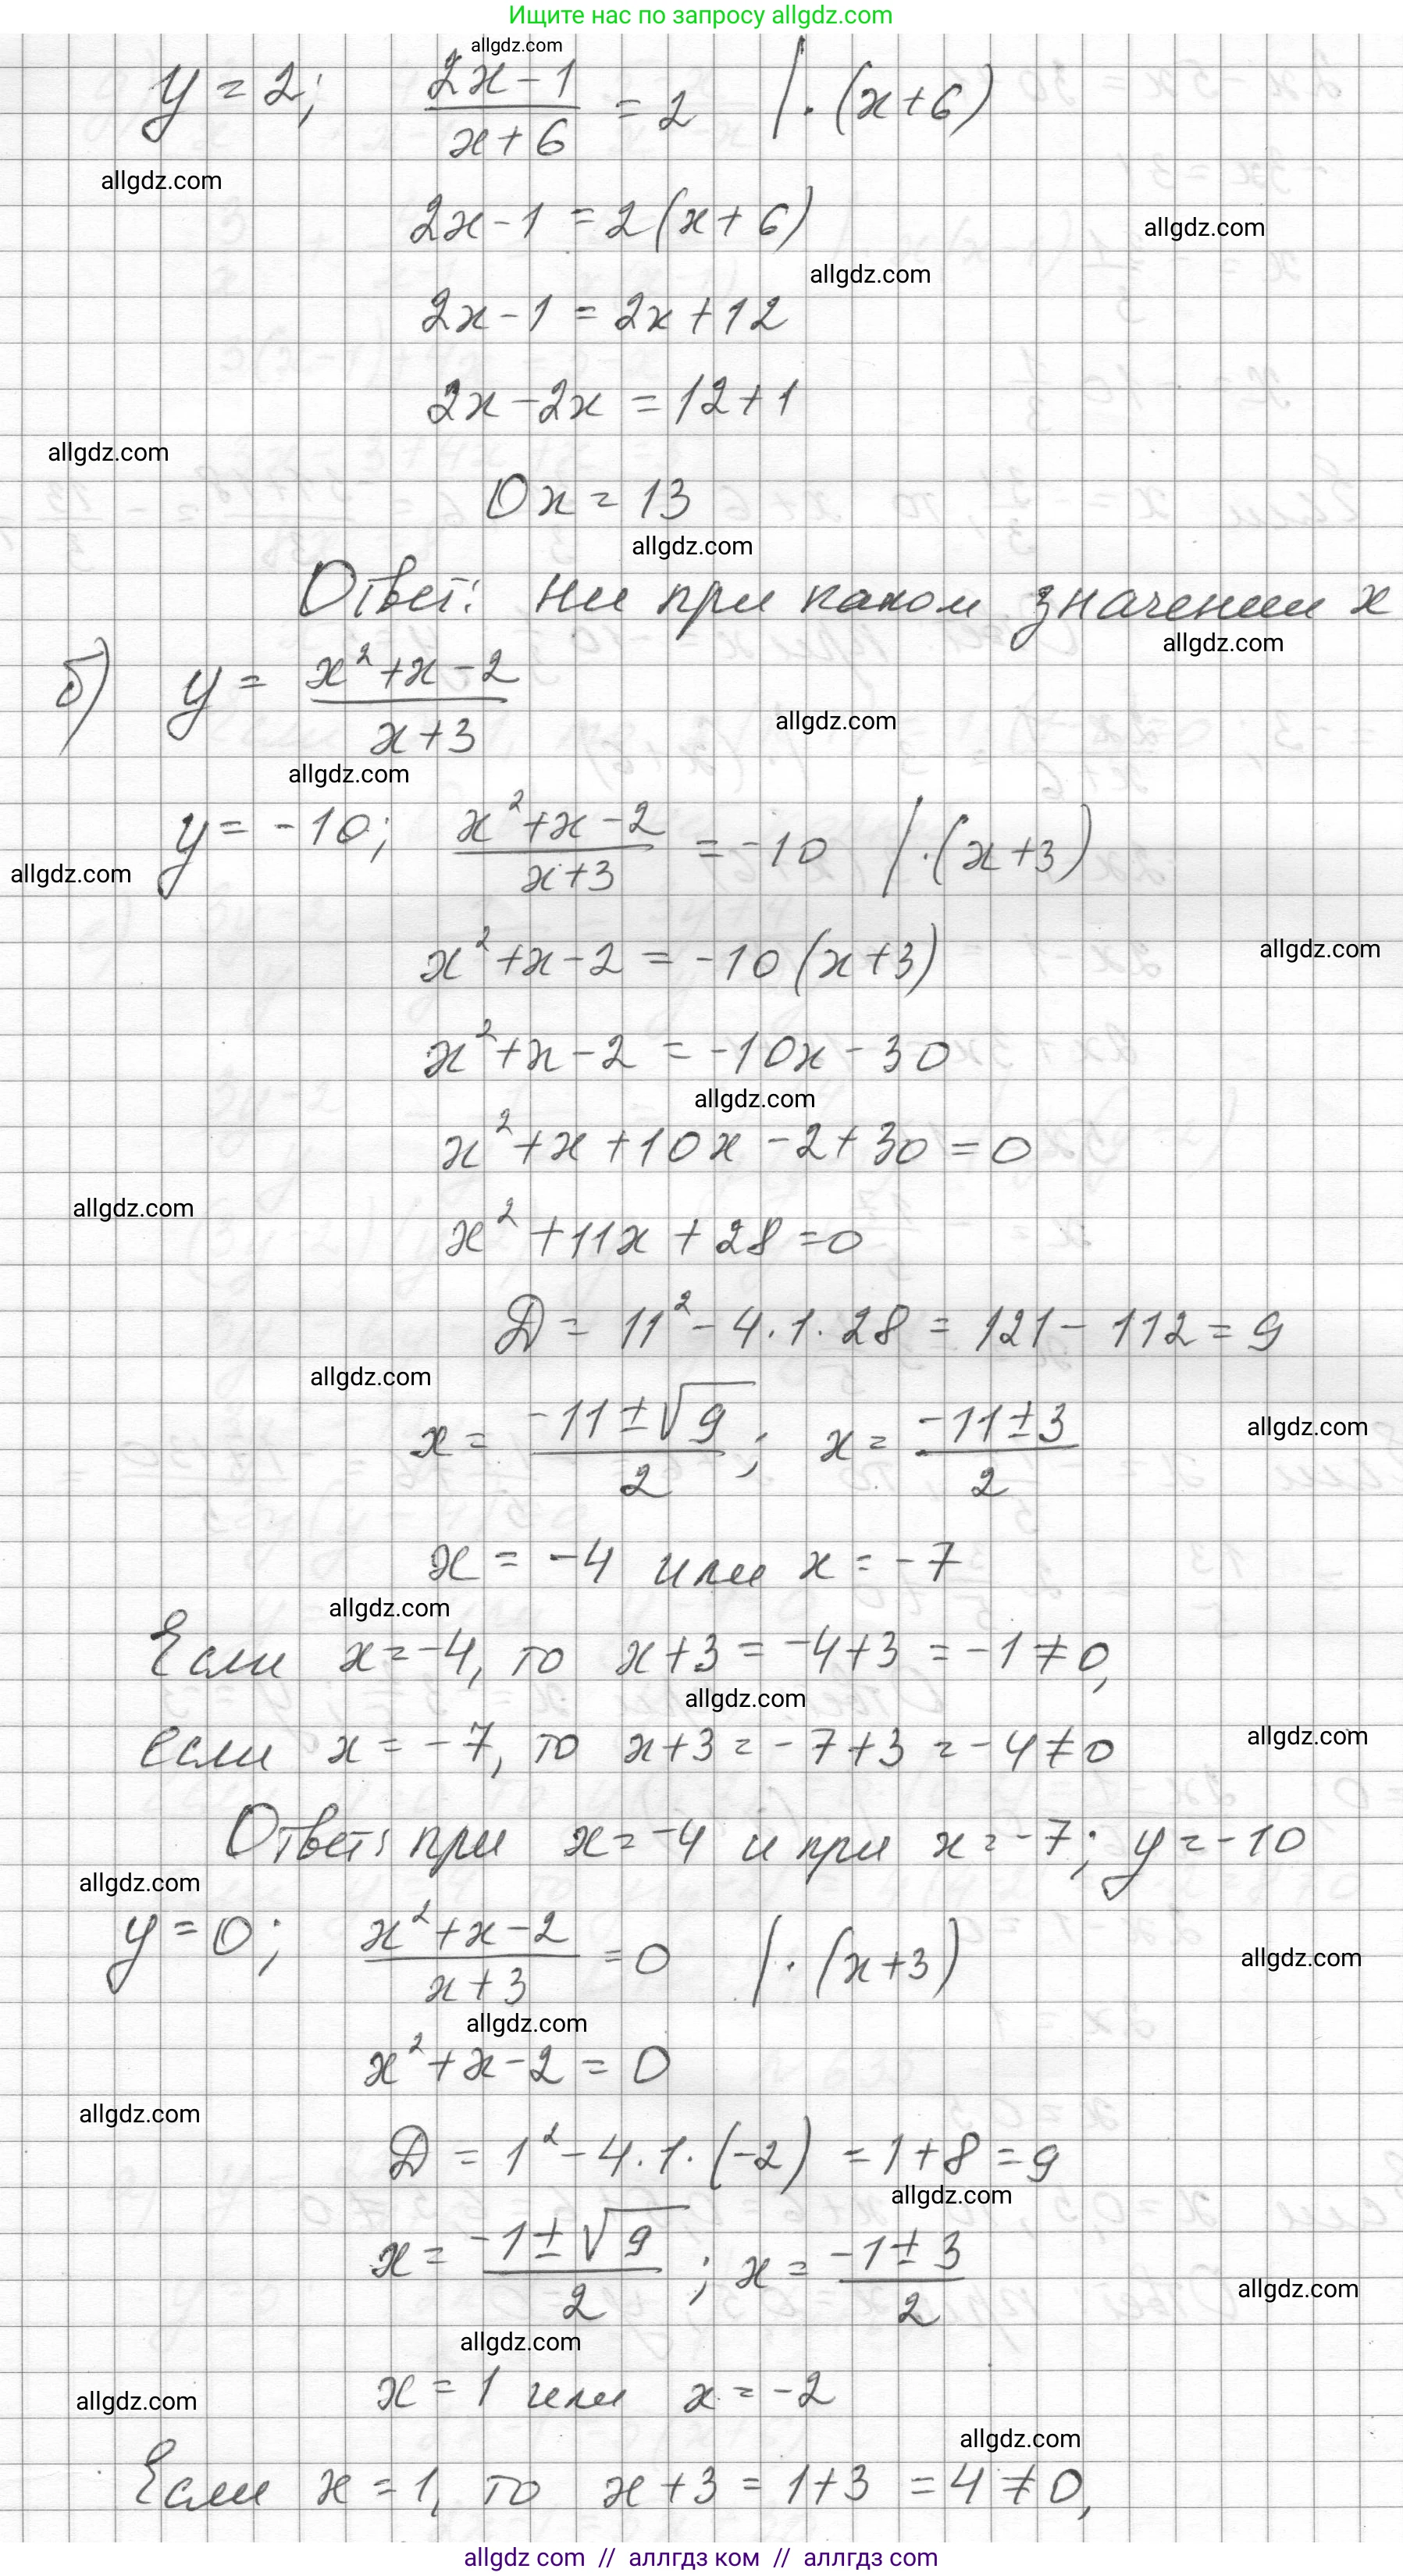 Ищите нас по запросу allgdz.com
allgdz.com
y = 2; (2x - 1)/(x + 6) = 2 | · (x + 6)
allgdz.com
2x - 1 = 2(x + 6)
allgdz.com
allgdz.com
2x - 1 = 2x + 12
2x - 2x = 12 + 1
allgdz.com
0x = 13
allgdz.com
Ответ: ни при каком значении x
allgdz.com
б) y = (x² + x - 2)/(x + 3)
allgdz.com
allgdz.com
y = -10; (x² + x - 2)/(x + 3) = -10 | · (x + 3)
allgdz.com
x² + x - 2 = -10(x + 3)
allgdz.com
x² + x - 2 = -10x - 30
allgdz.com
x² + x + 10x - 2 + 30 = 0
allgdz.com
x² + 11x + 28 = 0
D = 11² - 4 · 1 · 28 = 121 - 112 = 9
allgdz.com
x = (-11 ± √9)/2; x = (-11 ± 3)/2
allgdz.com
x = -4 или x = -7
allgdz.com
Если x = -4, то x + 3 = -4 + 3 = -1 ≠ 0,
allgdz.com
allgdz.com
если x = -7, то x + 3 = -7 + 3 = -4 ≠ 0
Ответ: при x = -4 и при x = -7; y = -10
allgdz.com
y = 0; (x² + x - 2)/(x + 3) = 0 | · (x + 3)
allgdz.com
allgdz.com
x² + x - 2 = 0
allgdz.com
D = 1² - 4 · 1 · (-2) = 1 + 8 = 9
allgdz.com
x = (-1 ± √9)/2; x = (-1 ± 3)/2
allgdz.com
allgdz.com
x = 1 или x = -2
allgdz.com
allgdz.com
Если x = 1, то x + 3 = 1 + 3 = 4 ≠ 0,
allgdz com // аллгдз ком // аллгдз com